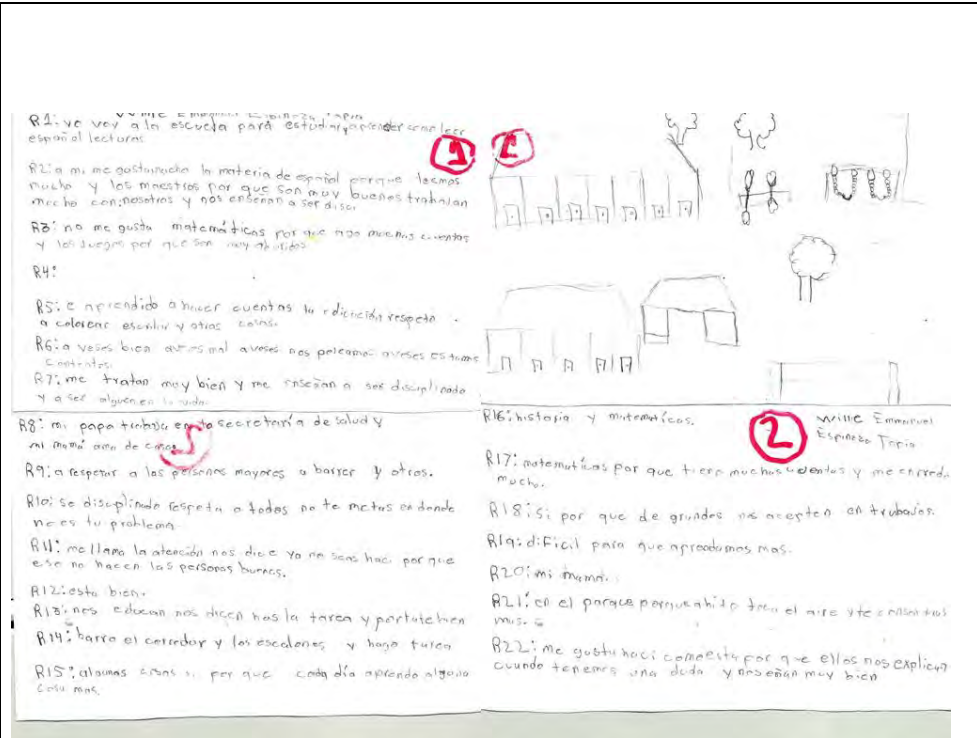 R1: yo voy a la escuela para estudiar y aprender como leer
español lecturas
R2: a mi me gusta mucho la materia de español porque leemos
mucho y los maestros por que son muy buenos trabajan
mecho con nosotros y nos enseñan a ser disci.
R3: no me gusta matemáticas por que ago muchas cuentas
y los juegos por que son muy aburidos.
R4:
R5: e aprendido a hacer cuentas la redicición respeto
a colorear escribir y otras cosas.
R6: a veses bien aveses mal aveses nos peleamos aveses estamos
contentos.
R7: me tratan muy bien y me enseñan a ser disciplinado
y a ser alguien en la vida.
1
C
R8: mi papa trabaja en la secretaría de salud y
mi mamá ama de casa.
R9: a respetar a las personas mayores a barrer y otros.
R10: se disciplinado respeta a todos no te metas en donde
no es tu problema
R11: me llama la atención nos dice ya no seas haci por que
eso no hacen las personas buenas.
R12: esta bien.
R13: nos educan nos dicen has la tarea y portate bien
R14: barro el corredor y los escalones y hago tarea
R15: algunas cosas si por que cada día aprendo alguna
cosa mas.
R16: historia y matemáticas.
2
Willie Emmanuel
Espinoza Tapia
R17: matematicas por que tiene muchas cuentas y me enredo
mucho.
R18: si por que de grandes nos acepten en trabajos.
R19: dificil para que aprendamos mas.
R20: mi mamá.
R21: en el parque porque ahi te tren el aire y te consentras
mas.
R22: me gusta haci como esta por que ellos nos explican
cuando tenemos una duda y enseñan muy bien